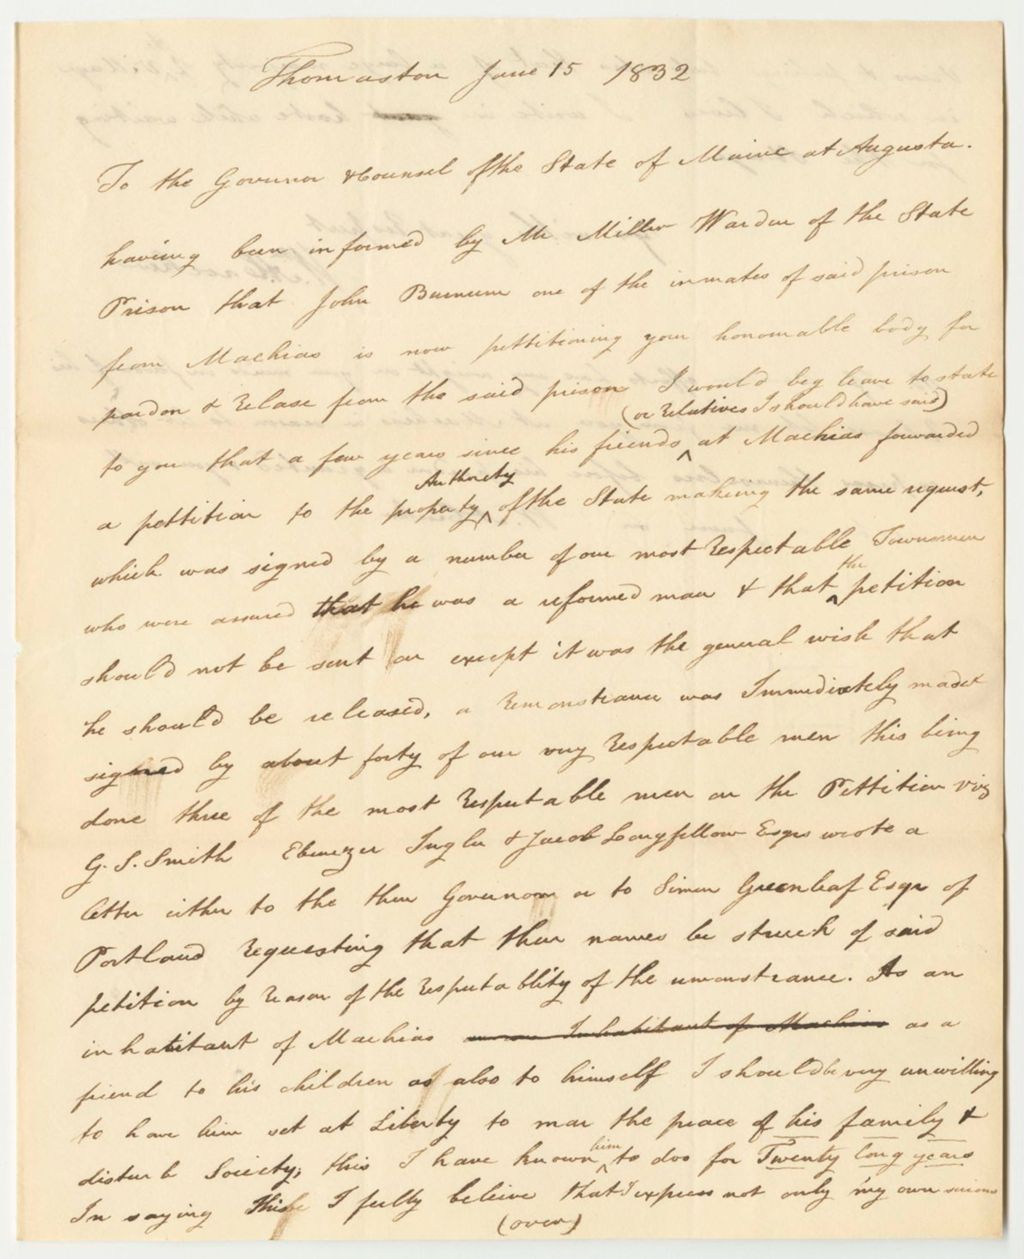 Thomaston June 15 1832
To the Govenor & Counsel of the State of Maine at Augusta.
having been informed by Mr Miller Warden of the State
Prison that John Burnum one of the inmates of said prison
from Machias is now pettitioning your honourable body for
pardon & relase from the said prison I would beg leave to state
(or relatives I should have said)
to you that a few years since his friends ^ at Machias forwarded
Authority
a pettition to the property ^ of the State making the same request,
which was signed by a number of our most respectable Townsmen
who were assured that he was a reformed man & that ^ the petition
should not be sent on except it was the general wish that
he should be released, a remonstrance was Immediately made &
signed by about forty of our very respectable men this being
done three of the most respectable men on the Pettition viz
G. S. Smith Ebenezer Inglee & Jacob Longfellow Esqrs wrote a
letter either to the then Governor or to Simon Greenleaf Esqr of
Portland requesting that thier names be struck of said
petition by reason of the respectablity of the remonstrance. As an
inhabitant of Machias Inhabitant of Machias as a
friend to his children as also to himself I should be very unwilling
to have him set at Liberty to mar the peace of his family &
disturb Society, this I have known ^ him to doo for Twenty long years
In saying this I fully beleive that I express not only my own
(over)